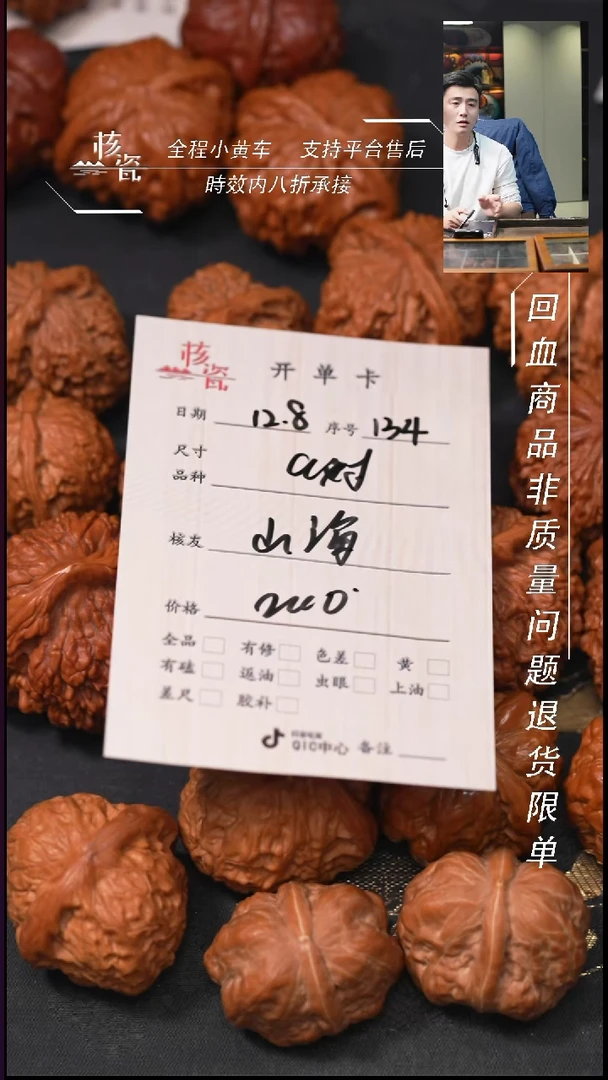 核瓷
全程小黄车 支持平台售后
時效内八折承接
回血商品非质量问题退货限单
核瓷
开单卡
日期 12.8 序号 134
尺寸
品种
核友 山海
价格
全品 有修 色差 黄
有磕 返油 虫眼 上油
差尺 胶补
抖音电商
QIC中心 备注